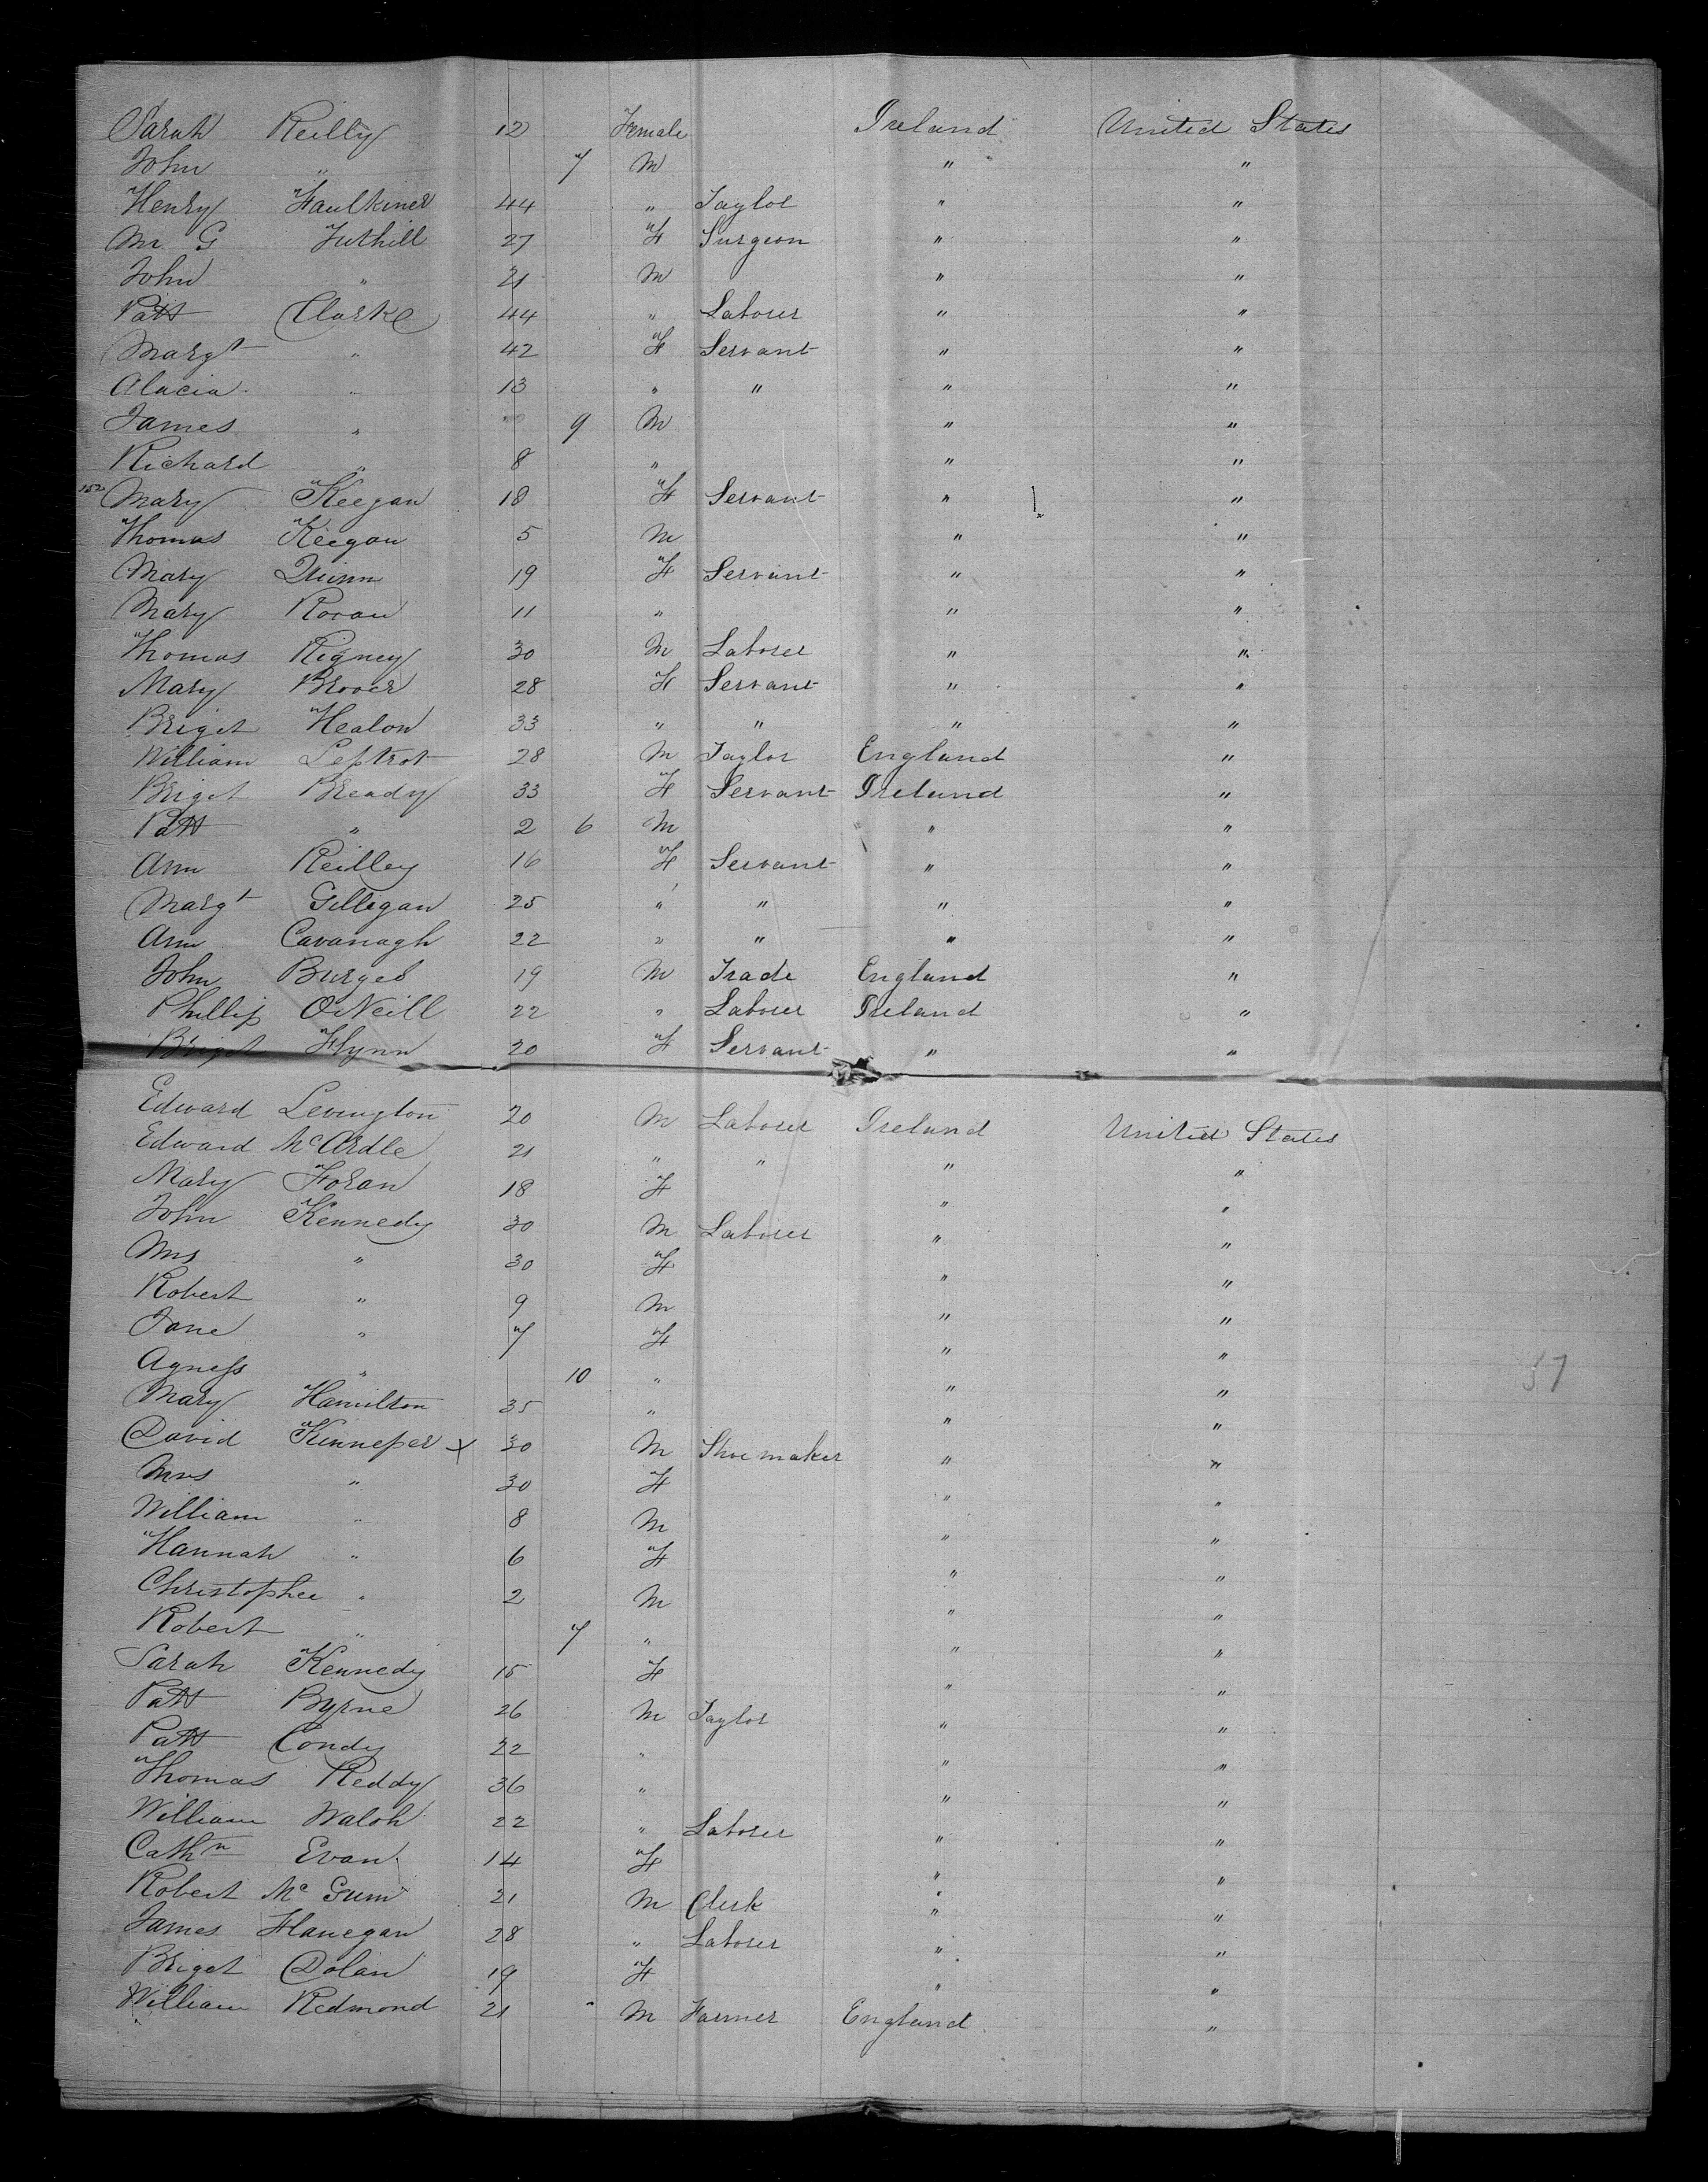 Sarah Reilly 12 Female Ireland United States
John " 7 M " "
Henry Faulkiner 44 " Taylor " "
Mr G Tuthill 27 F Surgeon " "
John " 21 M " "
Patt Clarke 44 " Laborer " "
Margt " 42 F Servant " "
Alacia " 13 " " " "
James " 9 M " "
Richard " 8 " " "
152 Mary Keegan 18 F Servant " "
Thomas Keegan 5 M " "
Mary Quinn 19 F Servant " "
Mary 11 " " "
Thomas Rigney 30 M Laborer " "
Mary Brover 28 F Servant " "
Briget Healon 33 " " " "
William Leptrot 28 M Taylor England "
Briget Bready 33 F Servant Ireland "
Patt " 2 6 M " "
Ann Reilley 16 F Servant " "
Margt Gilligan 25 " " " "
Ann Cavanagh 22 " " " "
John Burges 19 M Trade England "
Phillip O'Neill 22 " Laborer Ireland "
Briget Flynn 20 F Servant " "
Edward Levington 20 M Laborer Ireland United States
Edward McArdle 21 " " " "
Mary Foran 18 F " "
John Kennedy 30 M Laborer " "
Mrs " 30 F " "
Robert " 9 M " "
Jane " 7 F " "
Agness " 10 " " "
Mary Hamilton 35 " " "
David x 30 M Shoemaker " "
Mrs " 30 F " "
William " 8 M " "
Hannah " 6 F " "
Christopher " 2 M " "
Robert " 7 " " "
Sarah Kennedy 15 F " "
Patt Byrne 26 M Taylor " "
Patt Condy 22 " " "
Thomas Reddy 36 " " "
William Walsh 22 " Laborer " "
Cathn Evan 14 F " "
Robert Mc Gum 21 M Clerk " "
James Flanegan 28 " Laborer " "
Briget Dolan 19 F " "
William Redmond 21 " M Farmer England "
57